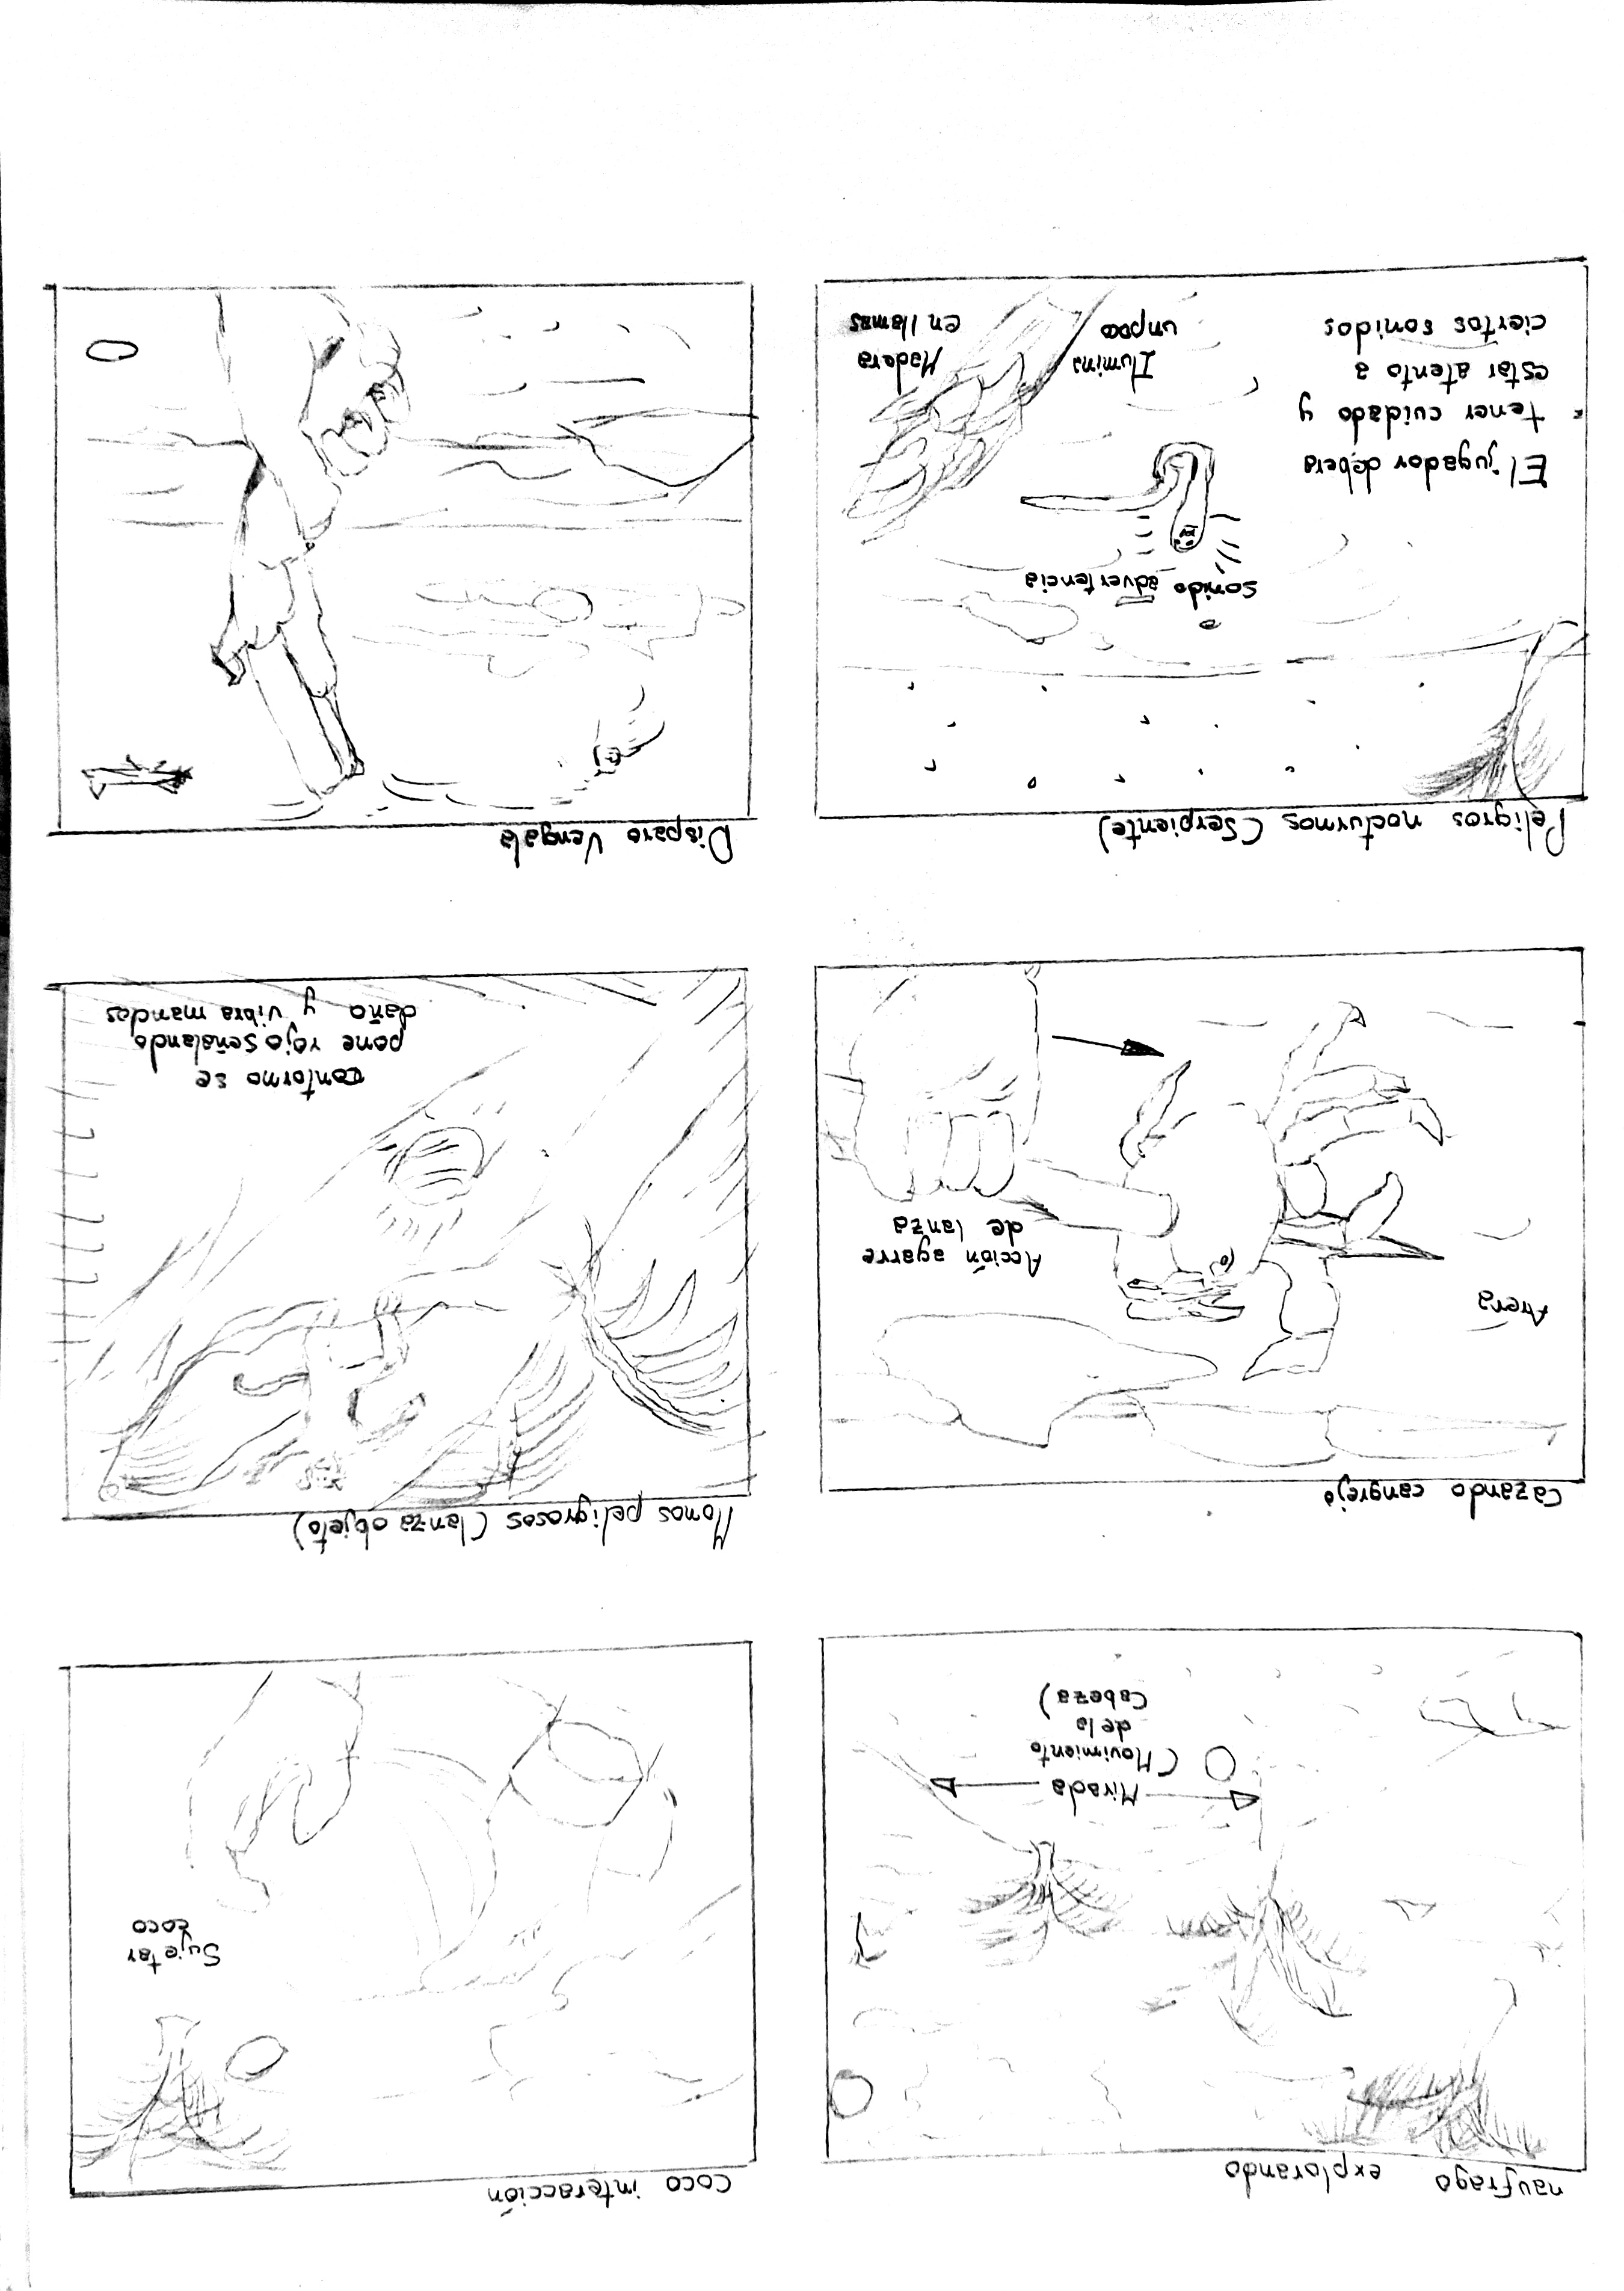 naufrago explorando
Mirada
(Movimiento
de la
Cabeza)
Coco interacción
Sujetar
coco
Cazando cangrejo
Arena
Acción agarre
de lanza
Monos peligrosos (lanza objeto)
contorno se
pone rojo señalando
daño y vibra mandos
Peligros nocturnos (Serpiente)
sonido advertencia
El jugador debera
tener cuidado y
estar atento a
ciertos sonidos
Ilumina
un poco
Madera
en llamas
Disparo Vengala